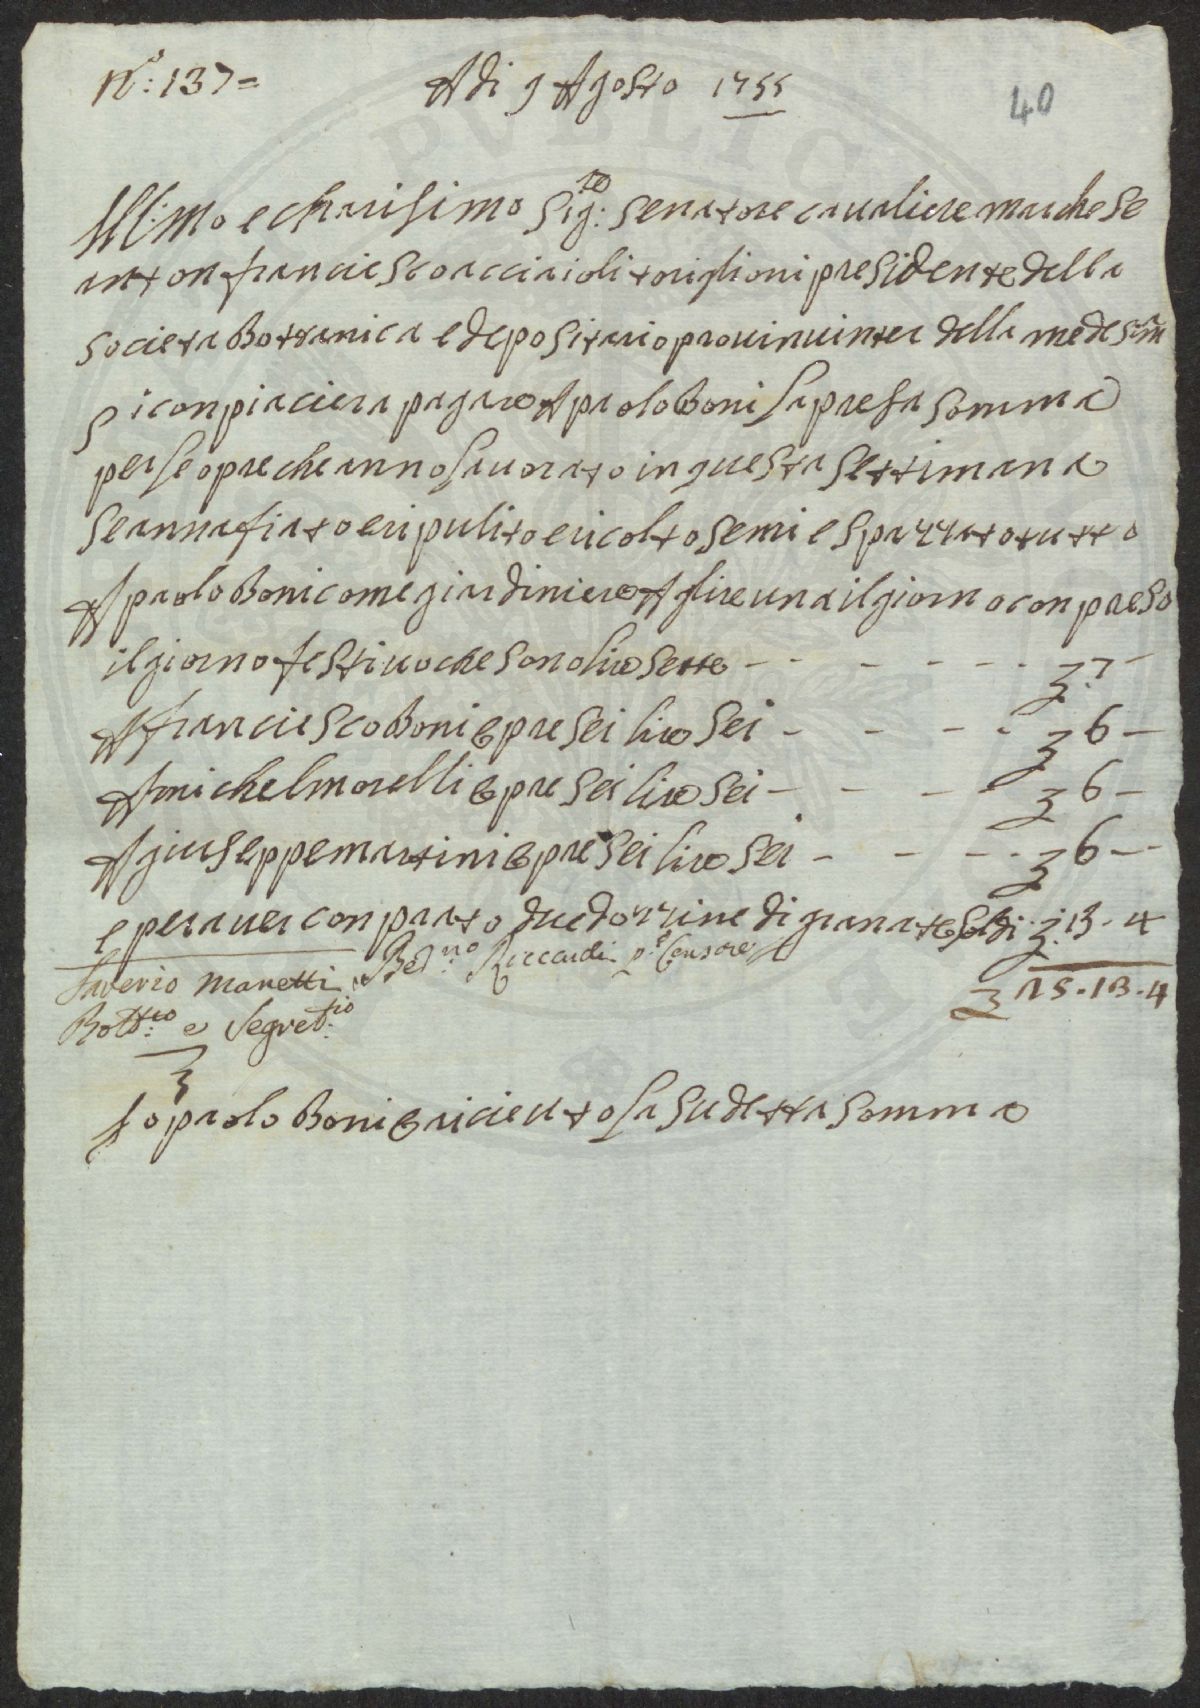 N.o: 137=
Adi 9 Agosto 1755
40
Ill:mo e charisimo Sig:re Senatore caualiere marchese
anton franciesco acciaioli toriglioni presidente della
societa Bottanica e depositario prouinuinter della medesima
si conpiaciera pagare A paolo Boni la presa somma
per le opre che anno lauorato in questa settimana
se annafiato e ripulito e ricolto semi e spazzato tutto
A paolo Boni come giardiniere A lire una il giorno conpreso
il giorno festiuo che sono lire sette - - - - - - - ʒ: 7 -
A franciesco Boni opre sei lire sei - - - - ʒ 6 -
A michel morelli opre sei lire sei - - - - ʒ 6 -
A giuseppe martini opre sei lire sei - - - - ʒ 6 - -
e per auer conprato due dozzine di granate soldi ʒ. 13. 4
Saverio Manetti Bed:no Riccardi p.e Censore
ʒ 25. 13. 4
Bott:co e Segret:rio
Io paolo Boni o riceuto la sudetta somma